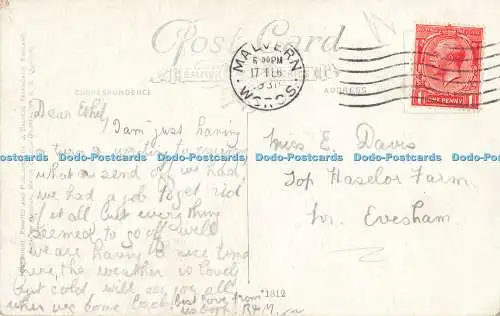 Post Card
CORRESPONDENCE
ADDRESS
MALVERN
6-PM
17 FE
31
WORCS.
ONE PENNY
Dear Ethel,
I am just having
a turn a writing to
what a send off we had,
we had a job to get rid
of it all but everything
seemed to go off well
we are having a nice time
here, the weather is lovely
but cold will see you all
when we come back best love from
us both. R & M.
Miss E. Davis
Top Haselor Farm.
Nr. Evesham.
1812
Dodo-Postcards.com Dodo-Postcards.com Dodo-Postcards.com Dodo-Postcards.com Dodo-Postcards.com